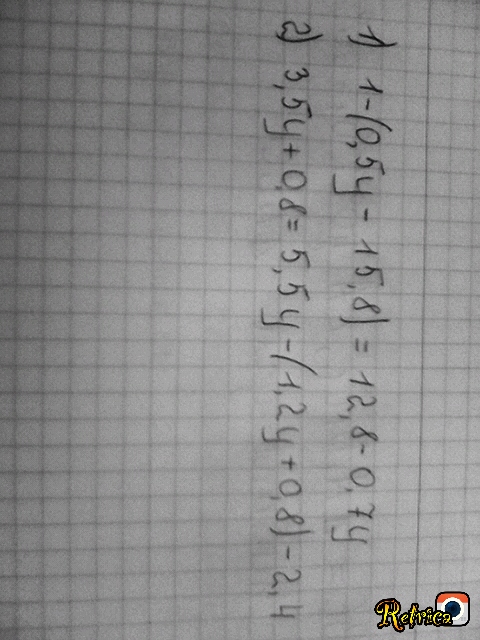 1) 1-(0,5y - 15,8) = 12,8-0,7y
2) 3,5y+0,8=5,5y-(1,2y+0,8)-2,4
Retrica